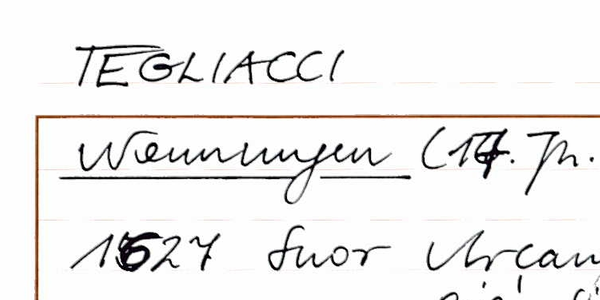 TEGLIACCI
Nennungen (17. Jh.
1627 Suor Arcan